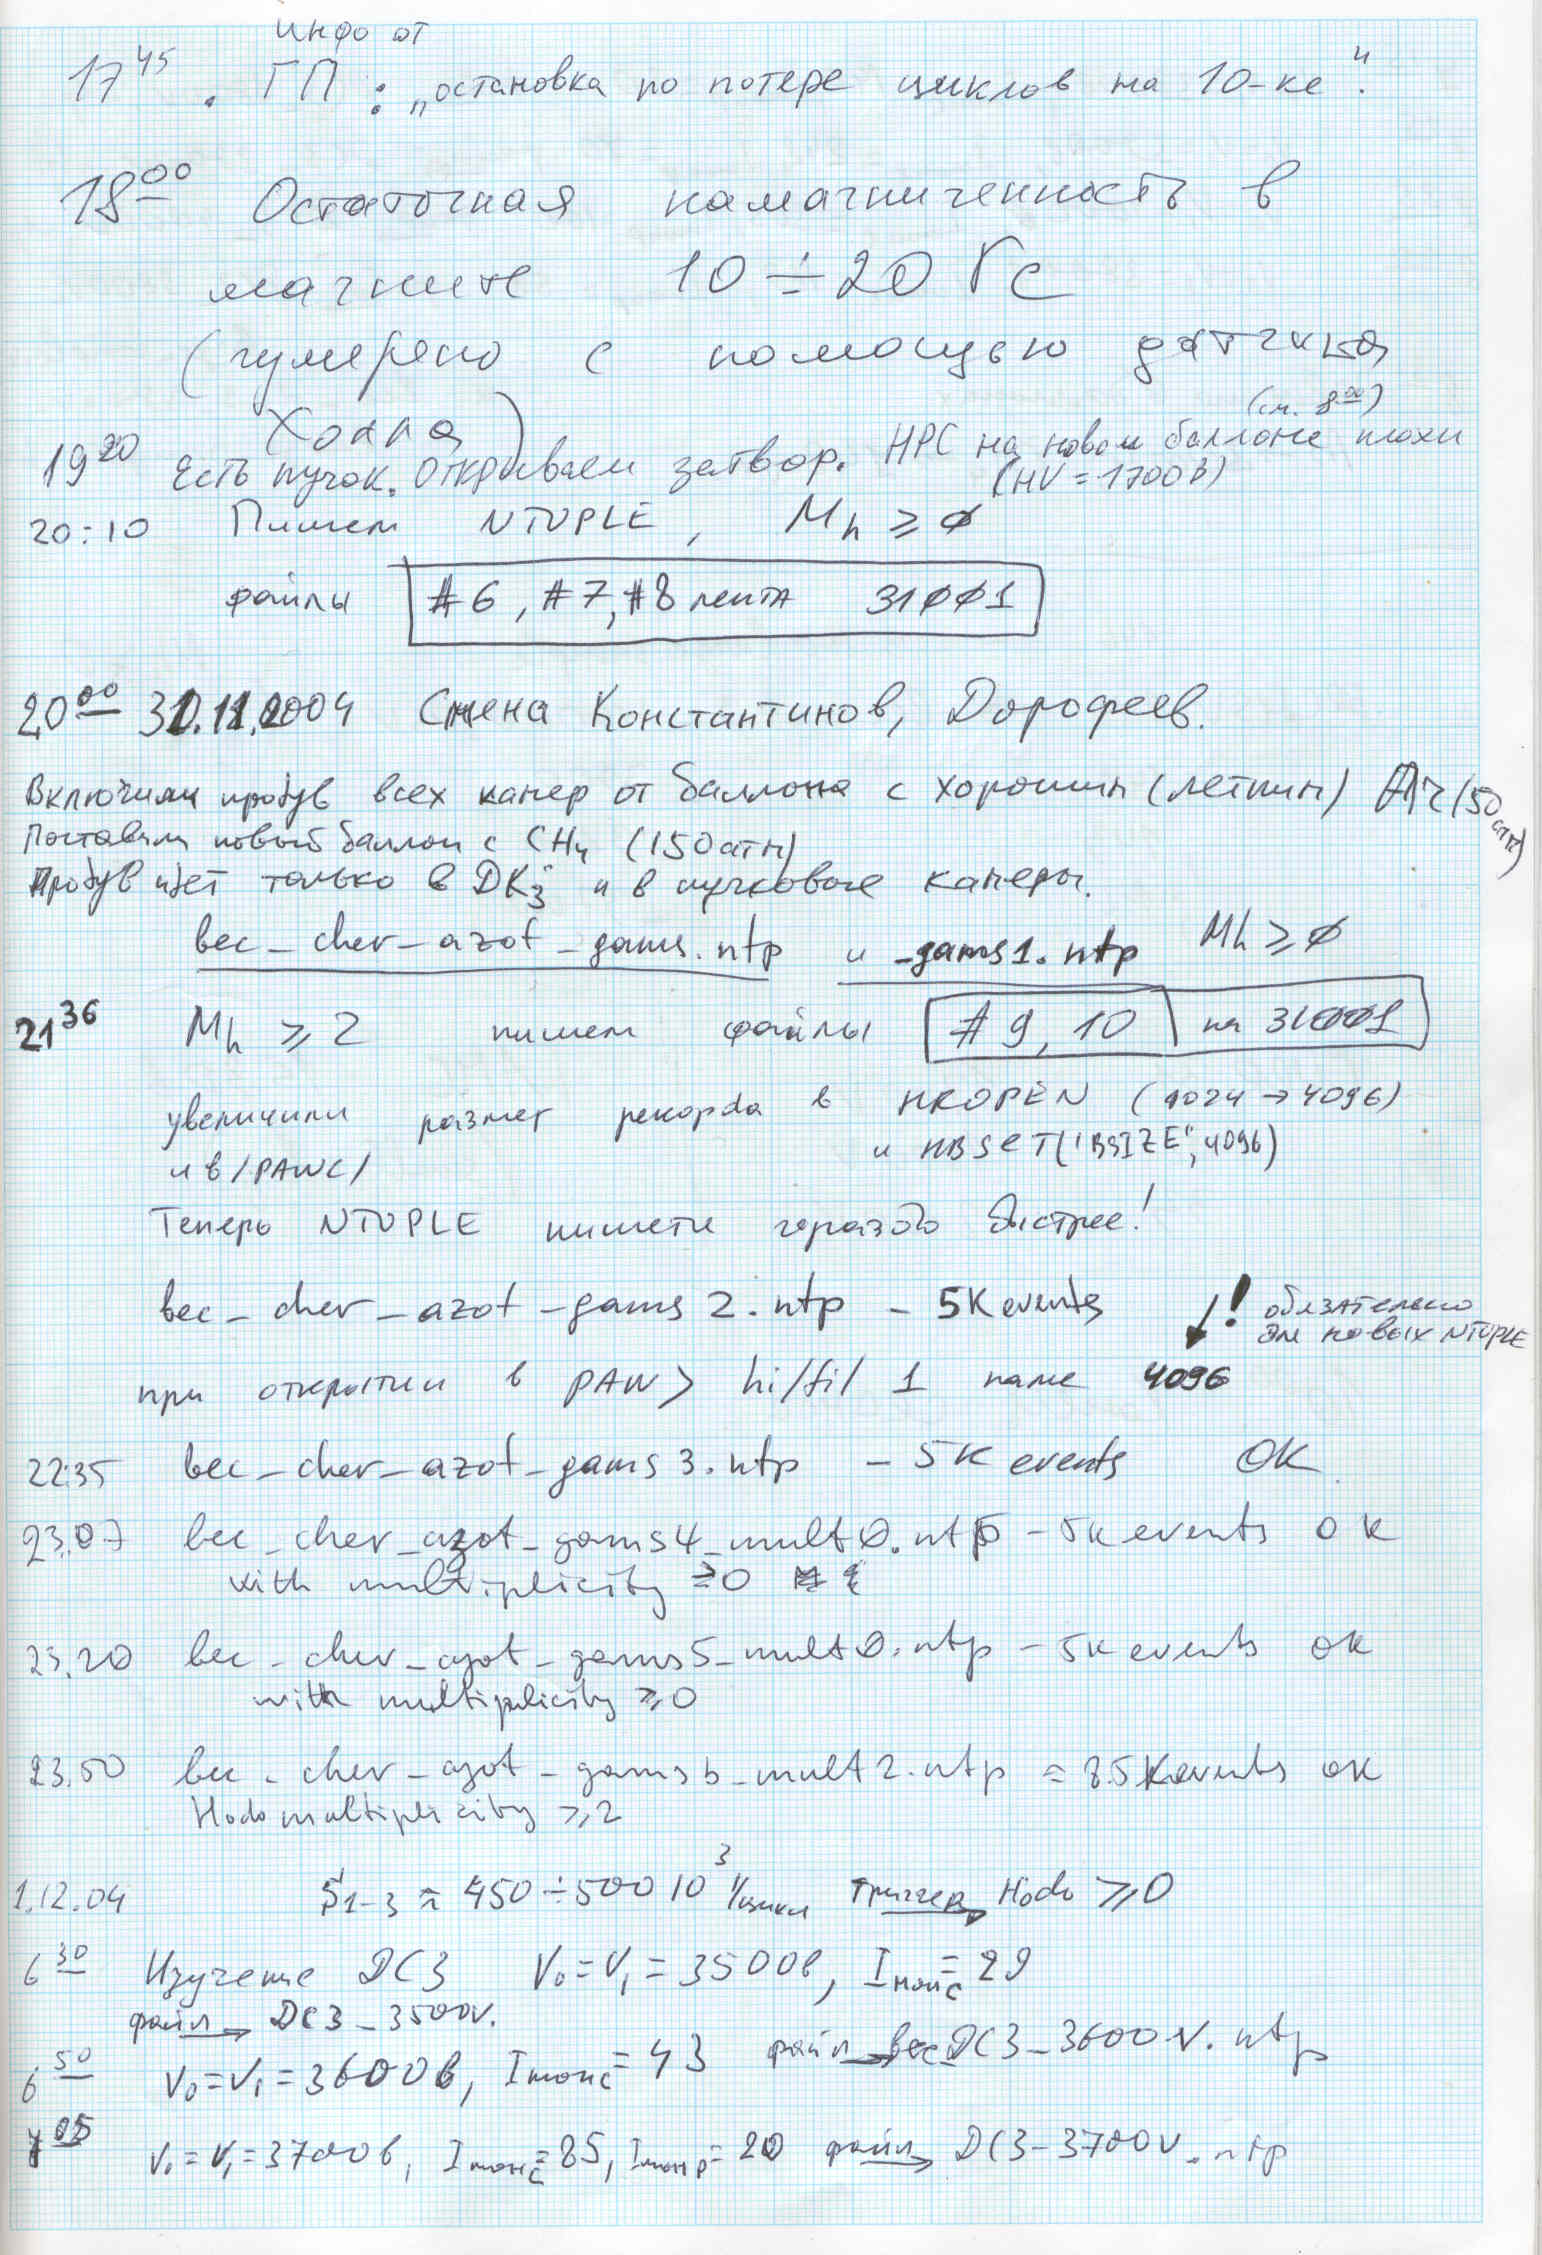 Инфо от
17⁴⁵. ГП: „остановка по потере циклов на 10-ке".
18⁰⁰ Остаточная намагниченность в
магните 10 ÷ 20 Гс
(измерено с помощью датчика
Холла)
(см. 8⁰⁰)
19²⁰ Есть пучок. Открываем затвор. НРС на новом баллоне плохи
(HV = 1700 В)
20:10 Пишем NTUPLE, Mh ≥ 0
файлы #6, #7, #8 лента 31001
20⁰⁰ Смена Константинов, Дорофеев.
Включили продув всех камер от баллона с хорошим (летним) Ar (150 атм)
Поставили новый баллон с CH₄ (150 атм)
Продув идет только в DK3 и в пучковые камеры.
bec_cher_azot_gams.ntp и _gams1.ntp Mh ≥ 0
21³⁶ Mh ≥ 2 пишем файлы #9, 10 на 31001
увеличили размер рекорда в HROPEN (1024 → 4096)
и в /PAWC/ и HBSET('BSIZE', 4096)
Теперь NTUPLE пишется гораздо быстрее!
bec_cher_azot_gams2.ntp - 5K events
! обязательно
для новых NTUPLE
при открытии в PAW> hi/fil 1 name 4096
22:35 bec_cher_azot_gams3.ntp - 5K events OK.
23.07 bec_cher_azot_gams4_mult0.ntp - 5K events OK
with multiplicity ≥ 0
23.20 bec_cher_azot_gams5_mult0.ntp - 5K events OK
with multiplicity ≥ 0
23.50 bec_cher_azot_gams6_mult2.ntp = 8.5K events OK
Hodo multiplicity ≥ 2
1.12.04 S1-3 ≈ 450 ÷ 500 10³ 1/цикл триггер → Hodo ≥ 0
6³⁰ Изучение DC3 V₀ = V₁ = 3500 в, Iмон c = 29
файл → DC3_3500V.
6⁵⁰ V₀ = V₁ = 3600 в, Iмон c = 43 файл → bec DC3_3600V.ntp
7⁰⁵ V₀ = V₁ = 3700 в, Iмон c = 85, Iмон p = 20 файл → DC3-3700V.ntp